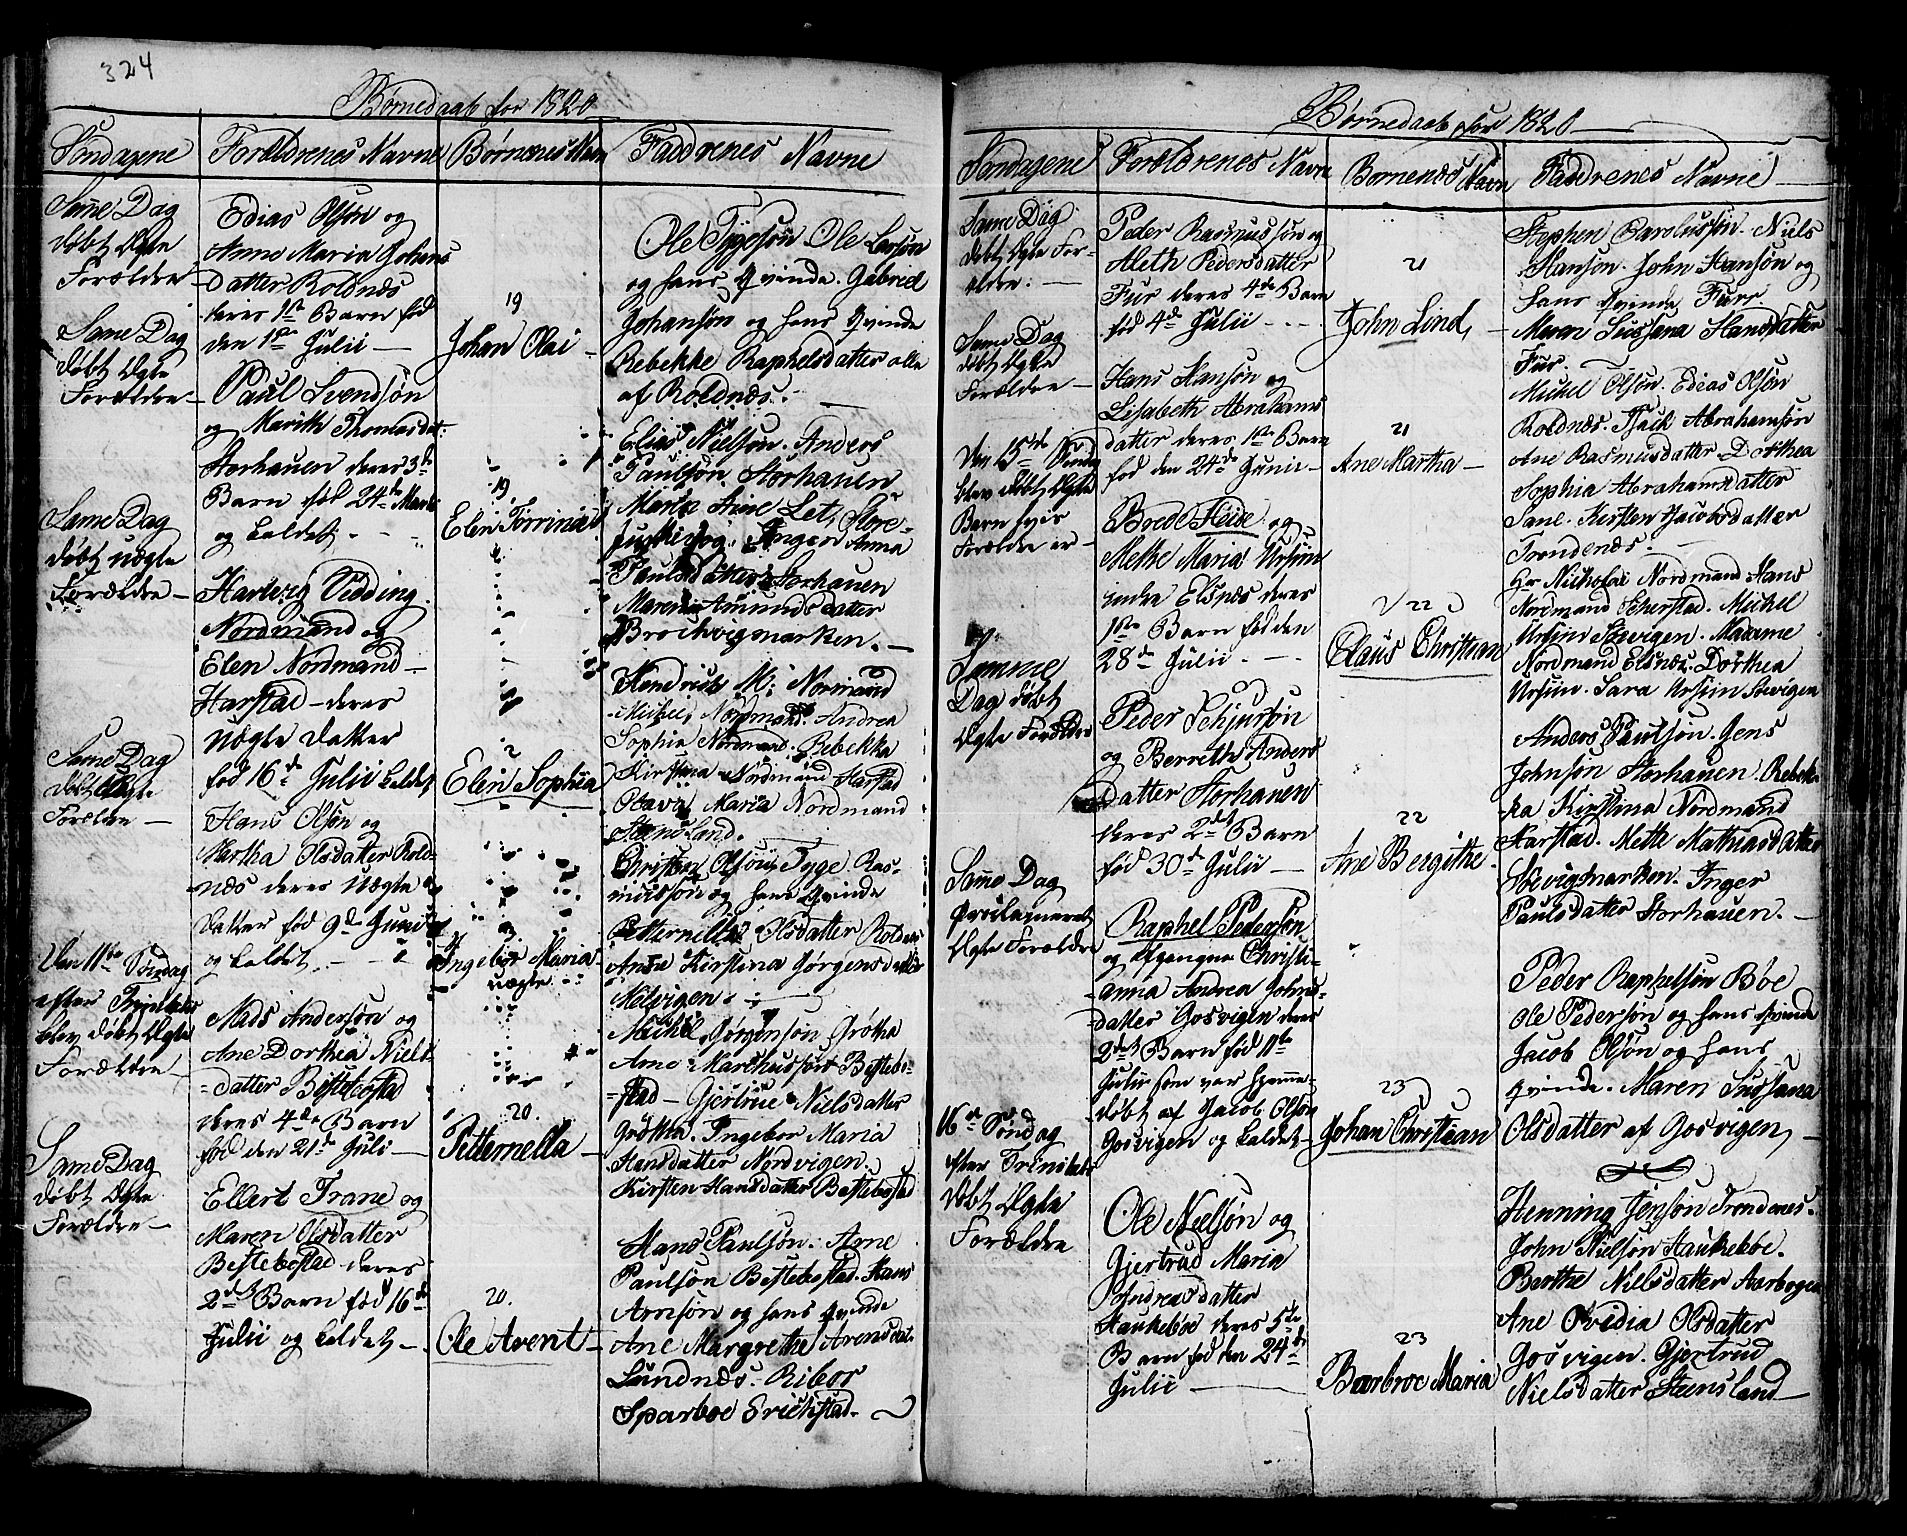 324
Børnedaab for 1820
Søndagene
Forældrenes Navne
Børnenes Navn
Faddrenes Navne
Same Dag
døbt Ægte
Forældre
Edias Olsøn og
Anne Maria Johans
datter Roldnæs
deres 1ste Barn fød
den 1ste Julii —
19
Johan Olai —
Ole Tygesøn Ole Larsøn
og hans Qvinde. Gabriel
Johansøn og hans Qvinde
Rebekke Raphelsdatter alle
af Roldnæs.
Same Dag
døbt Ægte
Forældre —
Paul Svendsøn
og Marith Thomasdat:
Storhauen deres 3de
Barn fød 24de Martii
og kaldet. - -
19
Elen Torrina
Elias Nielsøn. Anders
Paulsøn Storhauen
Marta Aine Let, Store-
Inger Anna
Paulsdatter Storhauen
Maren Amundsdatter
Brochvigmarken. —
Same Dag
døbt uægte
Forældre —
Hartvig Vedding
Nordmand og
Elen Nordmand —
Harstad — deres
uægte datter
fød 16de Julii kaldet
2
Elen Sophia
Hendrich M: Normand
Michel Nordmand. Andrea
Sophia Nordmand. Rebekka
Kirstina Nordmand Harstad
Olava Maria Nordmand
Steensland.
Same Dag
døbt Ægte
Forældre —
Hans Olsøn og
Marka Olsdatter Rold-
næs deres uægte
datter fød 9de Junii
og kaldet. - -
3
Ingebor Maria
uægte
Christen Olsøn Tyge Ras-
mussøn og hans Qvinde
Petternella Olsdatter Roldnæs
Anna Kirstina Jørgensdatter
Melvigen. —
Den 11te Søndag
efter Trinitatis
blev døbt Ægte
Forældre
Mads Andersøn og
Ane Dorthea Niels
datter Bestebostad
deres 4de Barn
fød den 21de Juli —
20.
Petternella —
Michel Jørgensøn Grøtha
Arne Marchussøn Bestebo-
stad — Gjertrue Nielsdatter
Grøtha. Ingebor Maria
Hansdatter Nordvigen.
Kirsten Hansdatter Bestebostad
Same Dag
døbt Ægte
Forældre —
Ellert Trane og
Maren Olsdatter
Bestebostad deres
2det Barn fød 16de
Julii og kaldet —
20.
Ole Arent —
Hans Paulsøn. Arne
Paulsøn Bestebostad. Hans
Arnsøn og hans Qvinde
Ane Margrethe Arensdat.
Lundnæs. Ribor
Sparboe Erichstad. —
Børnedaab for 1820 —
Søndagene
Forældrenes Navne
Børnenes Navn
Faddrenes Navne
Same Dag
døbt Ægte For-
ældre. —
Peder Rasmussøn og
Aleth Pedersdatter
Fur deres 4de Barn
fød 4de Julii - - -
21
John Lind, —
Stephen Carolussøn. Niels
Hansøn. John Hansøn og
hans Qvinde Furr.
Maren Sussana Hansdatter
Fur. —
Same Dag
døbt Ægte
Forældre —
Hans Hansøn og
Lisabeth Abrahams
datter deres 1ste Barn
fød den 24de Junii —
21
Ane Martha —
Michel Olsøn. Edias Olsøn
Roldnæs. Isach Abrahamsøn
Ane Rasmusdatter Dorthea
Sophia Abrahamsdatter
Sane. Kirsten Jacobsdatter
Trondenæs. —
Den 15de Søndag
blev døbt Ægte
Barn hvis
Forældre er —
Brede Heide og
Mette Maria Ursiin
Elsnæs deres
1ste Barn fød den
28de Julii. —
22
Claus Christian
Hr Nicholai Nordmand Hans
Nordmand Scherstad. Michel
Ursiin Søevigen. Madame
Nordmand Elsnæs. Dorthea
Ursiin. Sara Ursiin Søevigen
Samme
Dag døbt
Ægte Forældre
Peder Schjursøn
og Bereth Anders
datter Storhauen
deres 2det Barn
fød 30de Julii —
22
Ane Bergithe
Anders Paulsøn. Jens
Johnsøn Storhauen. Rebek-
ka Kirstina Nordmand
Harstad. Mette Mathiasdatter
Søevigmarken. Inger
Paulsdatter Storhauen. —
Same Dag
Ægte Forældre
Raphel Pedersøn
og afgangne Christi-
anna Andrea Johns-
datter Gosvigen deres
2det Barn fød 11te
Julii som var hjemme-
døbt af Jacob Olsøn
Gosvigen og kaldet —
23
Johan Christian
Peder Raphelsøn Bøe
Ole Pedersøn og hans Qvinde
Jacob Olsøn og hans
Qvinde. Maren Sussana
Olsdatter af Gosvigen, —
16de Søndag
efter Trinitatis
døbt Ægte
Forældre
Ole Nielsøn og
Gjertrud Maria
Andreasdatter
Haukeboe deres 5te
Barn fød den 24de
Julii —
23
Barbroe Maria
Henning Jensøn Trondenes.
John Nielsøn Haukeboe.
Barthæ Nielsdatter Aarbogen
Ane Ovidia Olsdatter
Gosvigen. Gjertrud
Nielsdatter Steensland —